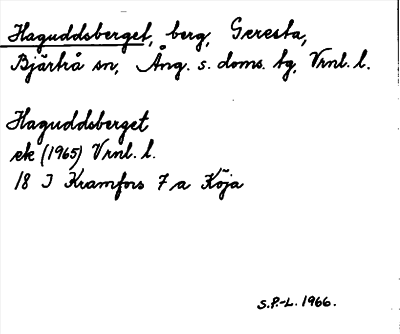 Haguddsberget, berg, Geresta,
Bjärtrå sn, Ång. s. doms. tg, Vrnl. l.
Haguddsberget
ek (1965) Vrnl. l.
18 I Kramfors 7 a Köja
S.P.-L. 1966.